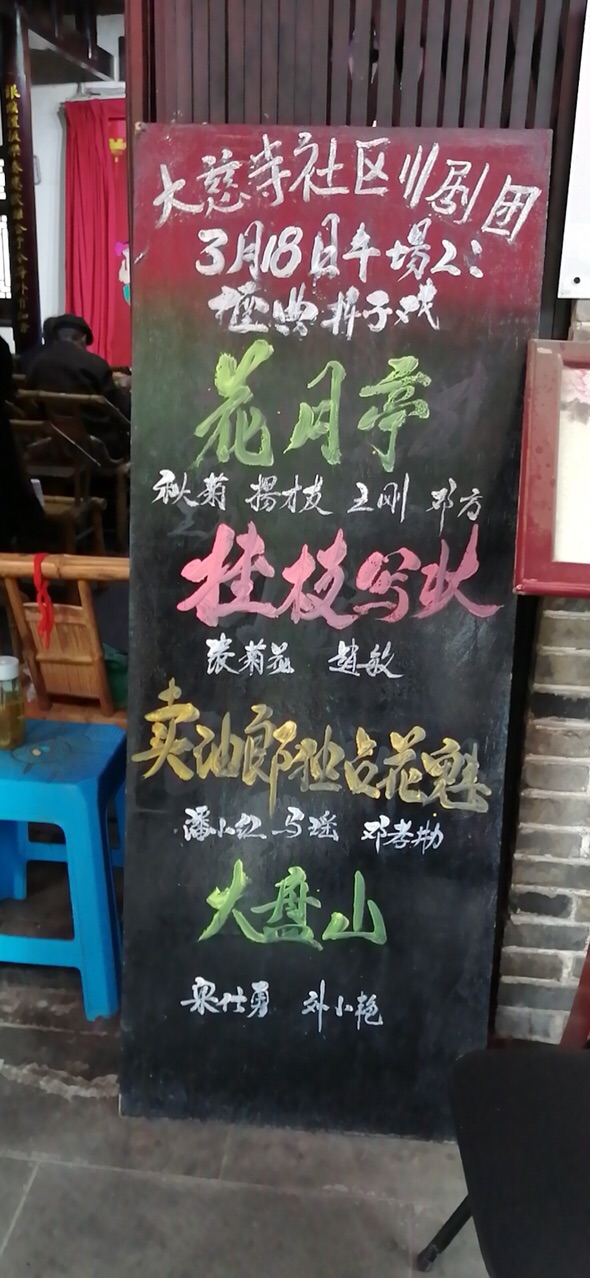 大慈寺社区川剧团
3月18日午場2:
经典折子戏
花月亭
秋菊 揚才友 王刚 邓方
桂枝写状
張菊花 趙敏
卖油郎独占花魁
潘小红 马瑶 邓孝勋
大盘山
梁仕勇 孙小艳